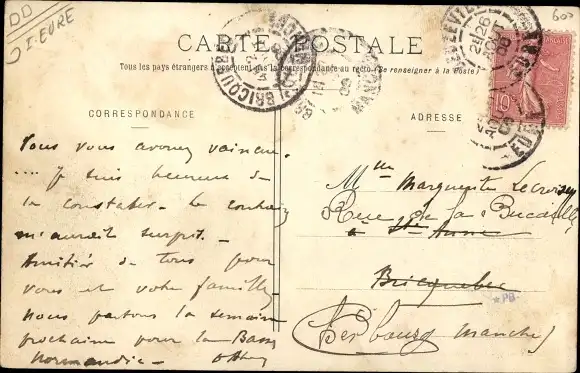 DD
I-EURE
600
CARTE POSTALE
Tous les pays étrangers n'acceptent pas la correspondance au recto. (Se renseigner à la Poste)
CORRESPONDANCE
Vous vous avouez vaincue.
.... Je suis heureux de
la constater. Le contraire
m'aurait surpris. -
Amitiés de tous pour
vous et votre famille.
Nous partons la semaine
prochaine pour la Basse
Normandie -
ADRESSE
Mlle Marguerite Lecroisey
Rue de la Bucaille
à Ste Anne
Bricquebec
Cherbourg (Manche)
10
26
AOUT
EURE
BRICQUEBEC
MANCHE
PB